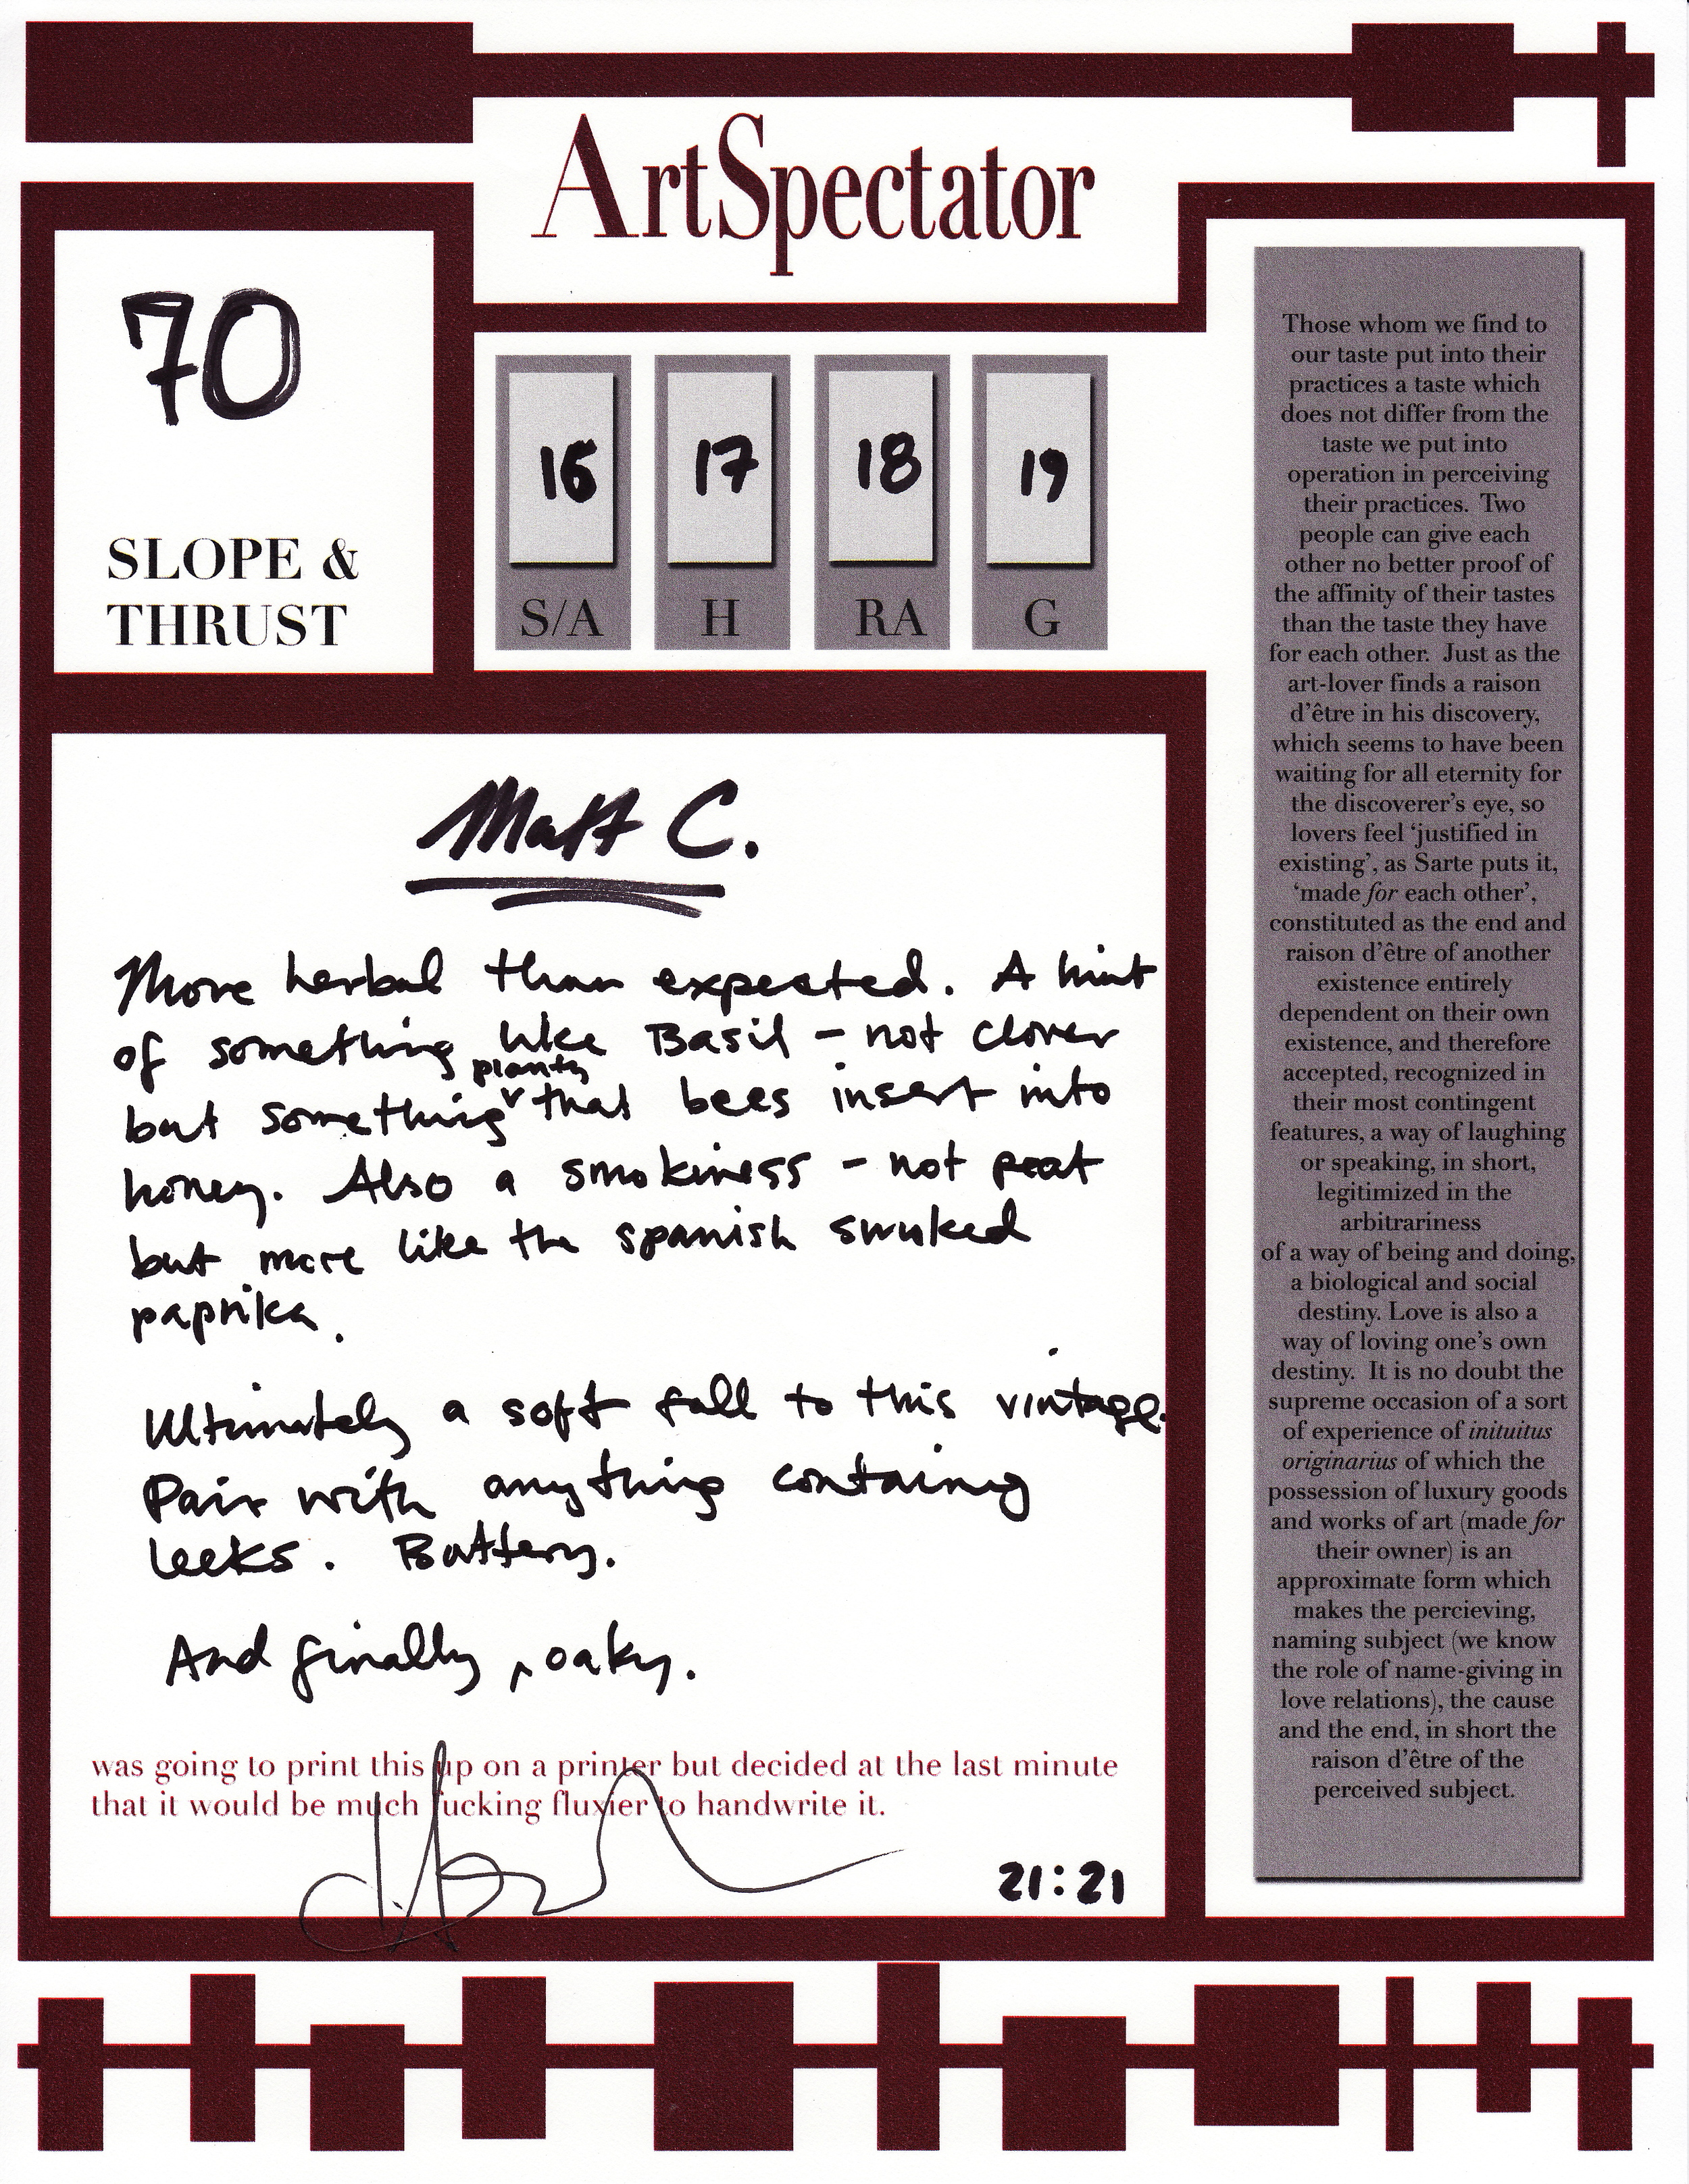 ArtSpectator
70
SLOPE &
THRUST
16 17 18 19
S/A H RA G
Matt C.
More herbal than expected. A hint
of something like Basil - not clover
but something planty that bees insert into
honey. Also a smokiness - not peat
but more like the spanish smoked
paprika.
Ultimately a soft fall to this vintage.
Pair with anything containg
leeks. Buttery.
And finally, oaky.
was going to print this up on a printer but decided at the last minute
that it would be much fucking fluxier to handwrite it.
21:21
Those whom we find to
our taste put into their
practices a taste which
does not differ from the
taste we put into
operation in perceiving
their practices. Two
people can give each
other no better proof of
the affinity of their tastes
than the taste they have
for each other. Just as the
art-lover finds a raison
d'être in his discovery,
which seems to have been
waiting for all eternity for
the discoverer's eye, so
lovers feel 'justified in
existing', as Sarte puts it,
'made for each other',
constituted as the end and
raison d'être of another
existence entirely
dependent on their own
existence, and therefore
accepted, recognized in
their most contingent
features, a way of laughing
or speaking, in short,
legitimized in the
arbitrariness
of a way of being and doing,
a biological and social
destiny. Love is also a
way of loving one's own
destiny. It is no doubt the
supreme occasion of a sort
of experience of inituitus
originarius of which the
possession of luxury goods
and works of art (made for
their owner) is an
approximate form which
makes the percieving,
naming subject (we know
the role of name-giving in
love relations), the cause
and the end, in short the
raison d'être of the
perceived subject.